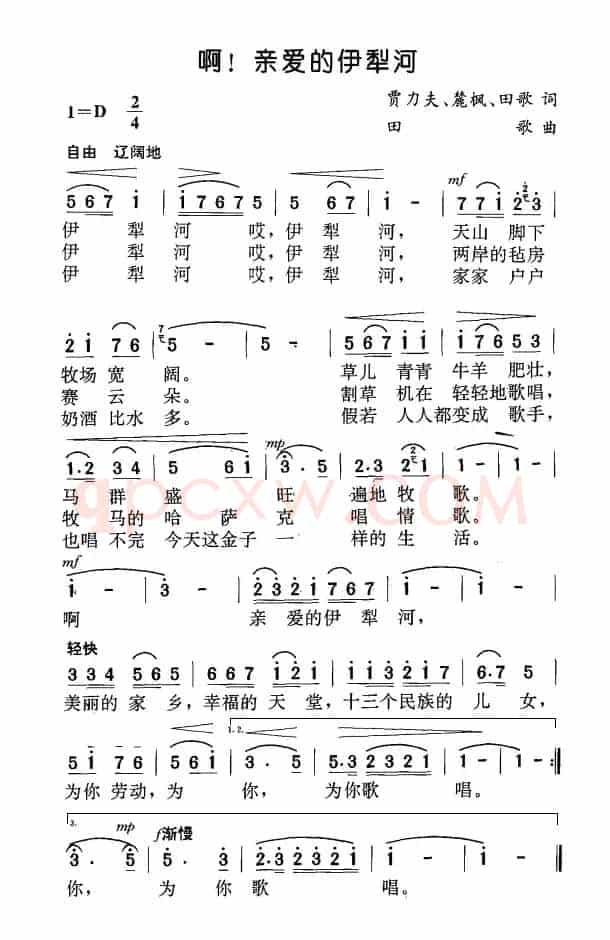 啊！亲爱的伊犁河
贾力夫、麓枫、田歌 词
1=D 2/4
田 歌 曲
自由 辽阔地
mf
5 6 7 i | i 7 6 7 5 | 5 6 7 | i - | 7 7 i 2 3 |
伊 犁 河 哎，伊 犁 河， 天山 脚下
伊 犁 河 哎，伊 犁 河， 两岸的毡房
伊 犁 河 哎，伊 犁 河， 家家 户户
2 i 7 6 | 5 - | 5 - | 5 6 7 i i | i 7 6 5 3 |
牧场 宽 阔。 草儿 青青 牛羊 肥壮，
赛 云 朵。 割草 机在 轻轻地歌唱，
奶酒 比水 多。 假若 人人都变成 歌手，
mp
1.2 3 4 | 5 6 i | 3 . 5 | 2.3 2 i | i - | i - |
马 群 盛 旺 遍地 牧 歌。
牧 马的 哈 萨 克 唱 情 歌。
也唱 不完 今天这金子 一 样的 生 活。
qpcxw.COM
mf
i - | 3 - | 2 3 2 i 7 6 7 | i - | i - |
啊 亲 爱的伊犁河，
轻快
3 3 4 5 6 5 | 6 6 7 i 2 i | i i 3 i 2 i | 6.7 5 |
美丽的 家 乡，幸福的 天 堂，十三个民族的 儿 女，
1.2.
5 i 7 6 | 5 5 | 3 . 5 | 5.3 2 3 2 i | i - | i - :||
为你 劳动，为 你， 为你歌 唱。
3.
mp
f渐慢
3 . 5 | 5 . 3 | 2.3 2 3 2 i | i - | i - ||
你， 为 你 歌 唱。